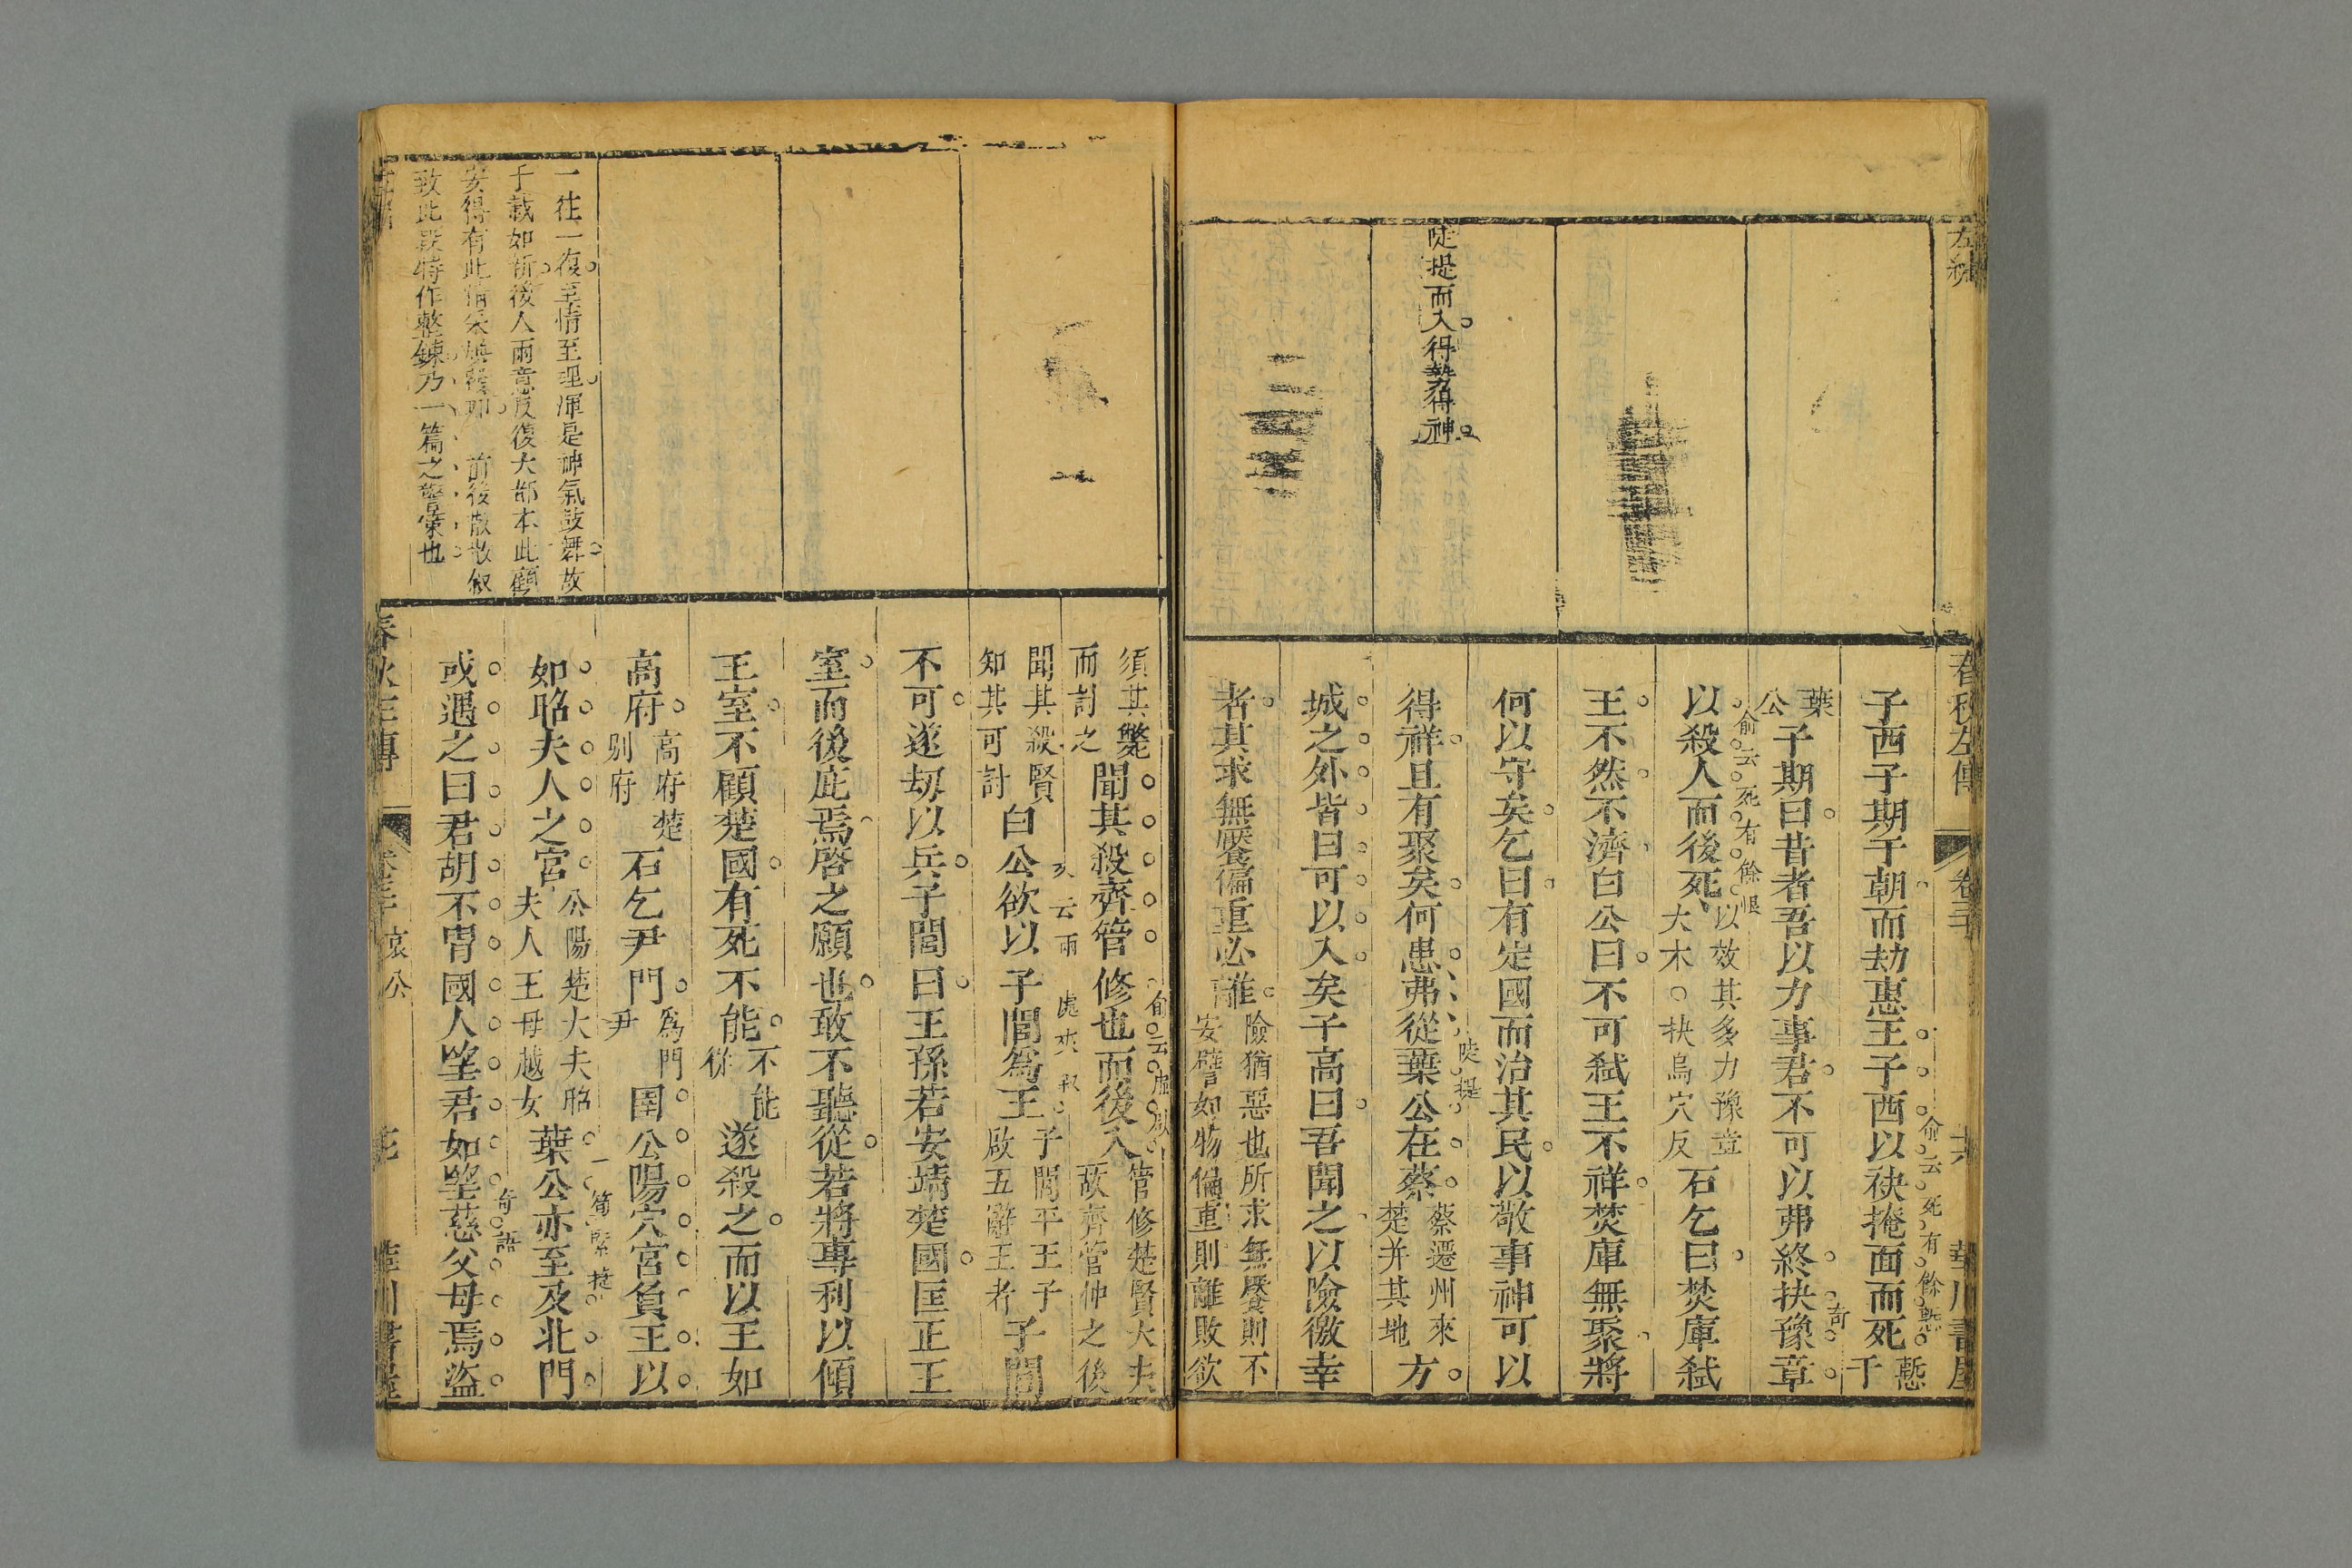 左繡
陡提而入得勢得神
春秋左傳 卷三十 六 華川書屋
子西子期于朝而劫惠王子西以袂掩面而死慙于
葉公子期曰昔者吾以力事君不可以弗終抉豫章
以殺人而後死以效其多力豫章大木○抉烏穴反石乞曰焚庫弒
王不然不濟白公曰不可弒王不祥焚庫無聚將
何以守矣乞曰有定國而治其民以敬事神可以
得祥且有聚矣何患弗從葉公在蔡蔡遷州來楚并其地方
城之外皆曰可以入矣子高曰吾聞之以險徼幸
者其求無饜偏重必離險猶惡也所求無饜則不安譬如物偏重則離敗欲
俞云死有餘慙
奇
俞云死有餘恨
陡提
須其斃而討之聞其殺齊管修也而後入管修楚賢大夫故齊管仲之後
聞其殺賢知其可討白公欲以子閭爲王子閭平王子啟五辭王者子閭
不可遂劫以兵子閭曰王孫若安靖楚國匡正王
室而後庇焉啓之願也敢不聽從若將專利以傾
王室不顧楚國有死不能不能從遂殺之而以王如
高府高府楚别府石乞尹門爲門尹圉公陽穴宮負王以
如昭夫人之宮公陽楚大夫昭夫人王母越女葉公亦至及北門
或遇之曰君胡不胄國人望君如望慈父母焉盜
一筆緊捷
奇語
一往一復至情至理渾是神氣鼓舞故
千載如新後人兩意反復大都本此顧
安得有此情采
前後散散叙
致此段特作整鍊乃一篇之警策也
春秋左傳 哀公 華川書屋